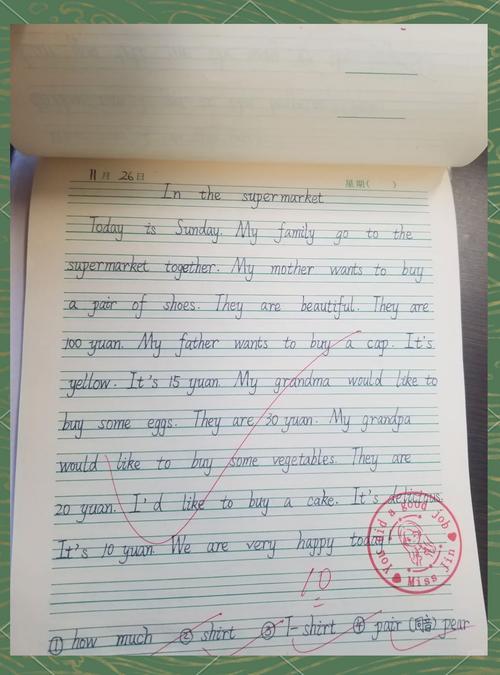 11月 26日 星期( )
In the supermarket
Today is Sunday. My family go to the
supermarket together. My mother wants to buy
a pair of shoes. They are beautiful. They are
100 yuan. My father wants to buy a cap. It's
yellow. It's 15 yuan. My grandma would like to
buy some eggs. They are 30 yuan. My grandpa
would like to buy some vegetables. They are
20 yuan. I'd like to buy a cake. It's delicious.
It's 10 yuan. We are very happy today!
You did a good job
Miss Jin
10
① how much ② shirt ③ T-shirt ④ pair (同音) pear